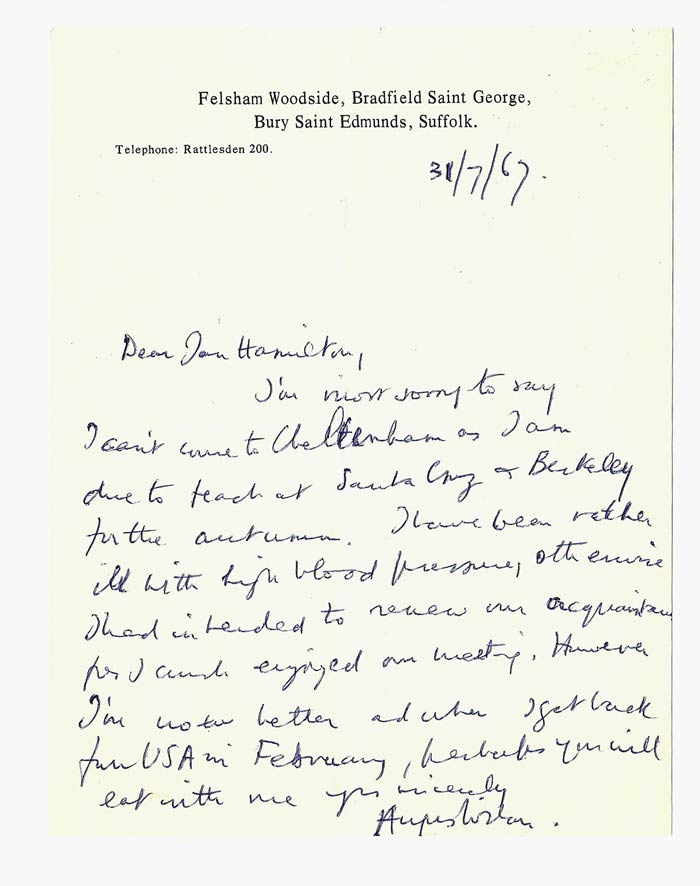 Felsham Woodside, Bradfield Saint George,
Bury Saint Edmunds, Suffolk.
Telephone: Rattlesden 200.
31/7/67.
Dear Ian Hamilton,
I'm most sorry to say
I can't come to Cheltenham as I am
due to teach at Santa Cruz & Berkeley
for the autumn. I have been rather
ill with high blood pressure, otherwise
I had intended to renew our acquaintance
for I much enjoyed our meeting. However
I'm now better and when I get back
from USA in February, perhaps you will
eat with me yrs sincerely
Angus Wilson.